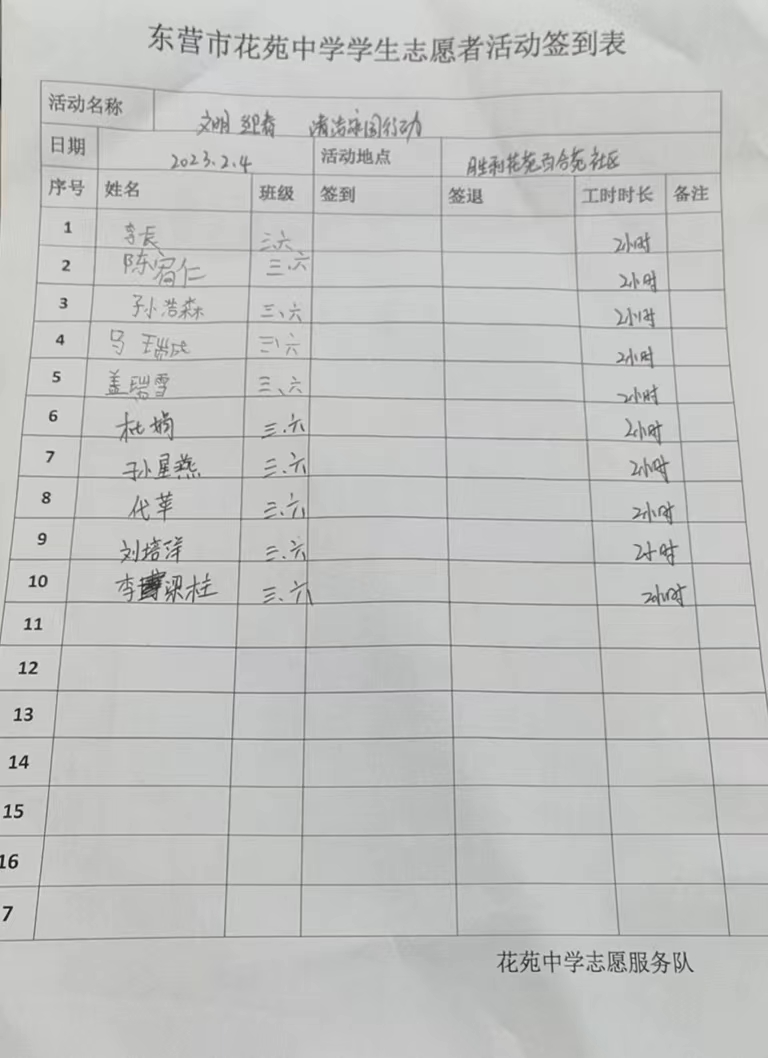 东营市花苑中学学生志愿者活动签到表
活动名称 文明迎春 清洁家园行动
日期 2023.2.4 活动地点 胜利花苑百合苑社区
序号 姓名 班级 签到 签退 工时时长 备注
1 李辰 三.六 2小时
2 陈宥仁 三.六 2小时
3 孙浩森 三、六 2小时
4 马 三、六 2小时
5 盖瑞雪 三、六 2小时
6 杜娟 三.六 2小时
7 孙星燕 三.六 2小时
8 代苹 三.六 2小时
9 刘培洋 三.六 2小时
10 李梁柱 三.六 2小时
11
12
13
14
15
16
7
花苑中学志愿服务队